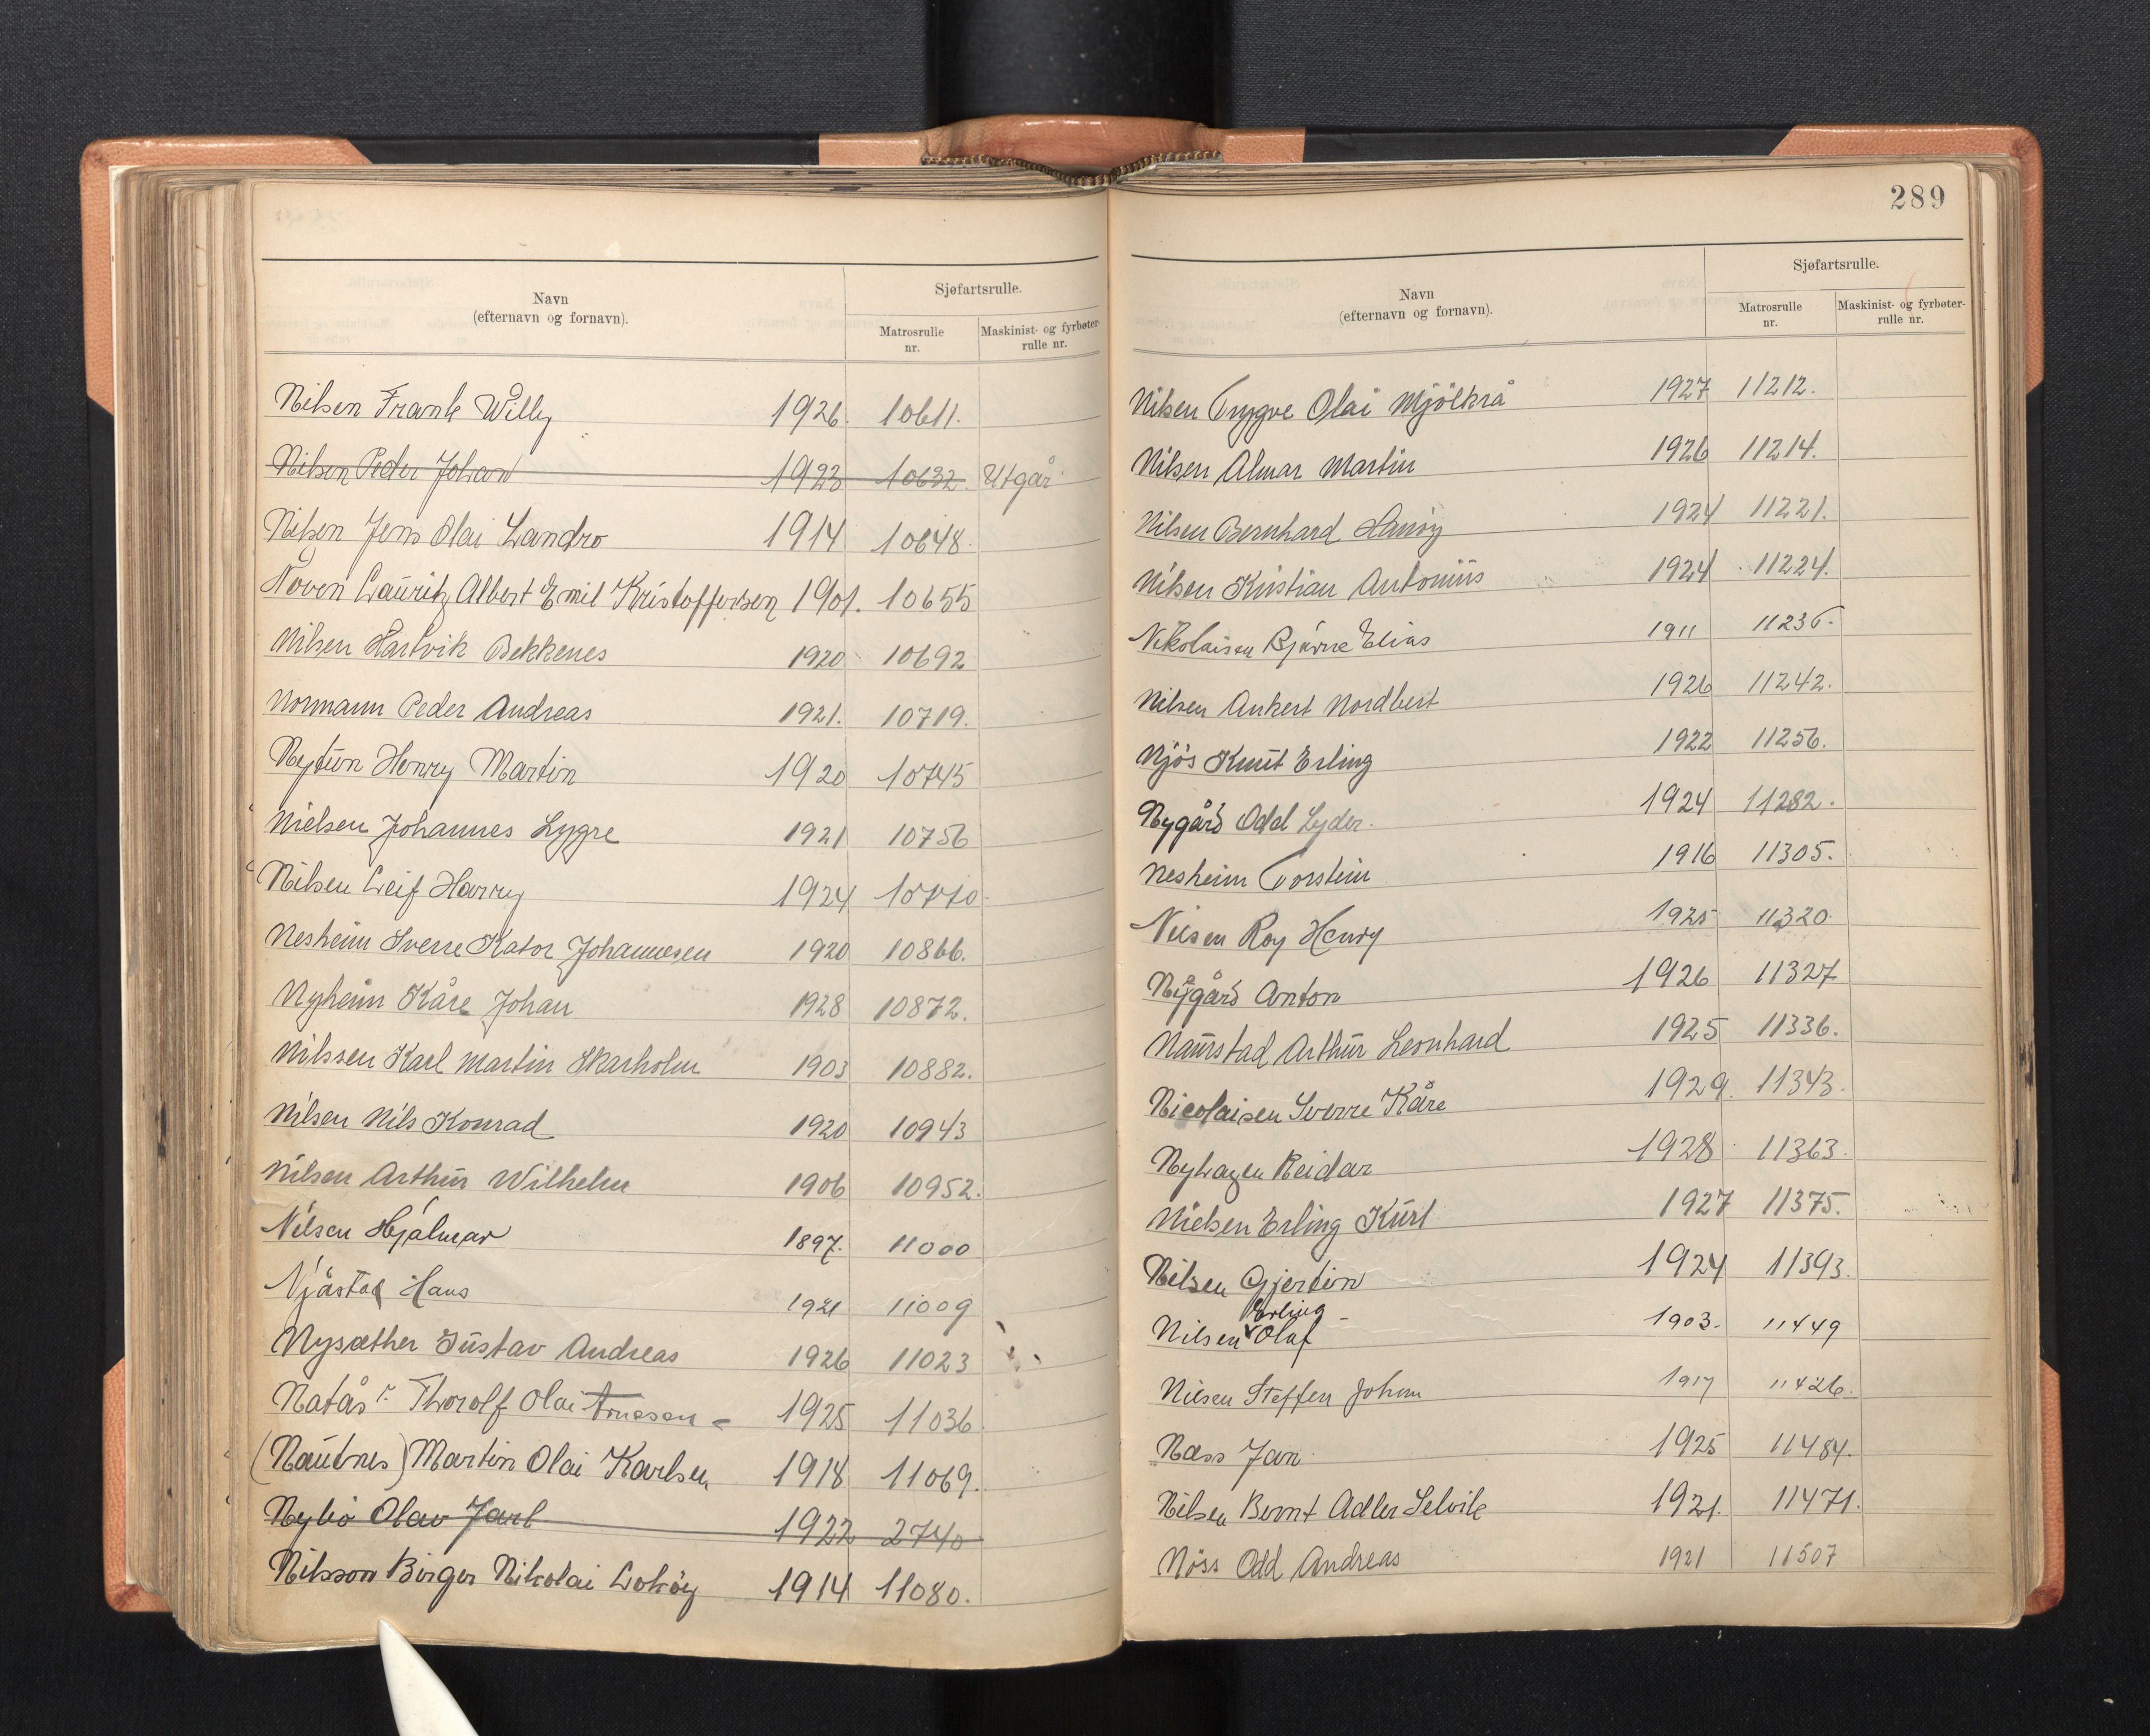 Navn
(efternavn og fornavn).
Sjøfartsrulle.
Matrosrulle
nr.
Maskinist- og fyrbøter-
rulle nr.
Nilsen Frank Willy 1926. 10611.
Nilsen Peder Johan 1923 10632. Utgår
Nilsen Jens Olai Landro 1914 10648.
Noven Lauritz Albert Emil Kristoffersen 1901. 10655
Nilsen Hartvik Bekkenes 1920 10692
Normann Peder Andreas 1921. 10719.
Nytun Henry Martin 1920 10745
Nielsen Johannes Lygre 1921 10756
Nilsen Leif Harry 1924 10770.
Nesheim Sverre Kator Johannesen 1920 10866.
Nyheim Kåre Johan 1928 10872.
Nilssen Karl Martin Skarholm 1903 10882.
Nilsen Nils Konrad 1920 10943
Nilsen Arthur Wilhelm 1906 10952.
Nilsen Hjalmar 1897. 11000
Njåstad Hans 1921 11009
Nysæther Gustav Andreas 1926 11023
Natås Thorolf Olai Arnesen 1925 11036.
(Nautnes) Martin Olai Karlsen 1918 11069.
Nybø Olav Jarl 1922 2740
Nilsson Birger Nikolai Lokøy 1914 11080.
289
Navn
(efternavn og fornavn).
Sjøfartsrulle.
Matrosrulle
nr.
Maskinist- og fyrbøter-
rulle nr.
Nilsen Tryggve Olai Mjölkrå 1927 11212.
Nilsen Almar Martin 1926 11214.
Nilsen Bernhard 1924 11221.
Nilsen Kristian Antonius 1924 11224.
Nikolaisen Bjarne Elias 1911 11236.
Nilsen Ankert Nordbert 1926 11242.
Njøs Knut Erling 1922 11256.
Nygård Odd Lyder. 1924 11282.
Nesheim Torstein 1916 11305.
Nilsen Roy Henry 1925 11320.
Nygård Anton 1926 11327
Naurstad Arthur Leonhard 1925 11336.
Nicolaisen Sverre Kåre 1929. 11343.
Nyhagen Reidar 1928 11363.
Nielsen Erling Kurt 1927 11375.
Nilsen Gjertin 1924 11393.
Erling
Nilsen Olaf 1903. 11449
Nilsen Steffen Johan 1917 11426.
Næss Jan 1925 11484.
Nilsen Bernt Adler Selvik 1921. 11471.
Nöss Odd Andreas 1921 11507